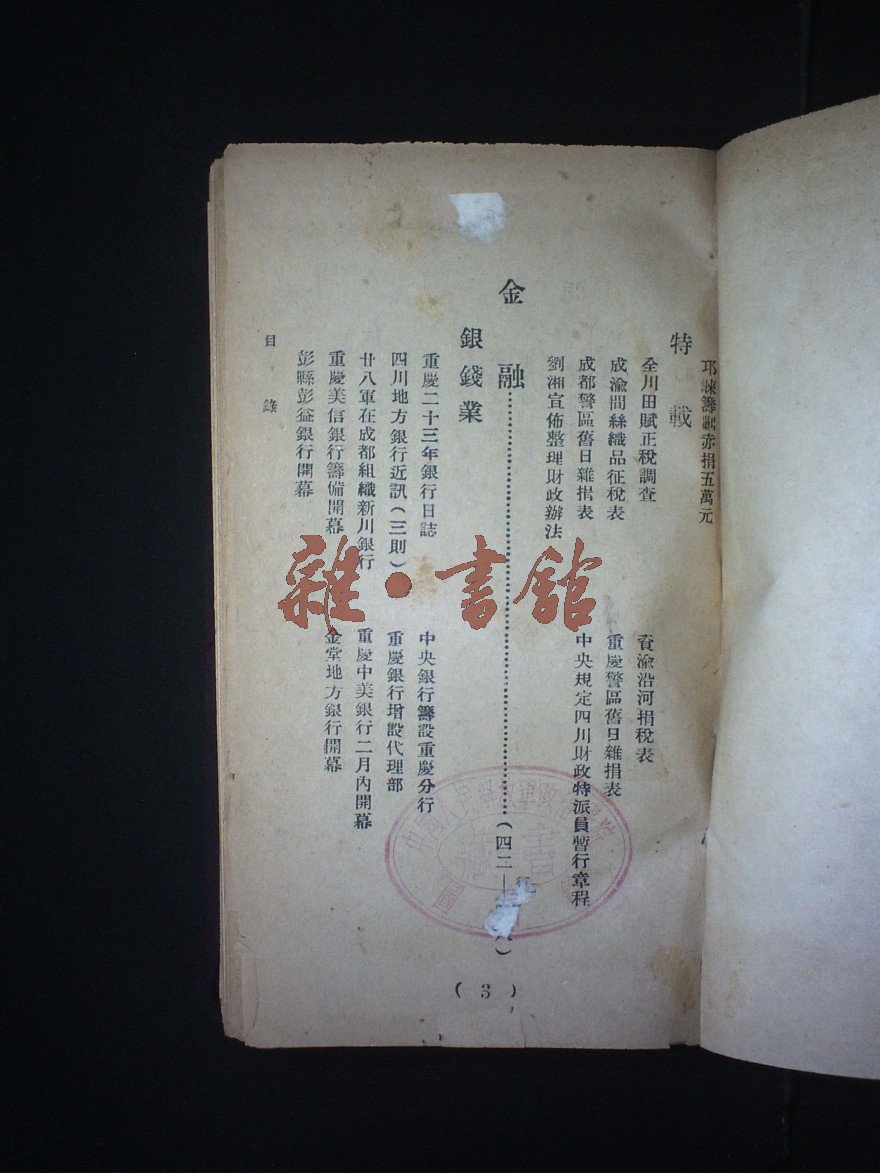 籌 赤捐五萬元
特載
全川田賦正稅調查
資渝沿河捐稅表
成渝間絲織品征稅表
重慶警區舊日雜捐表
成都警區舊日雜捐表
中央規定四川財政特派員暫行章程
劉湘宣佈整理財政辦法
金融……(四二—八)
銀錢業
重慶二十三年銀行日誌
中央銀行籌設重慶分行
四川地方銀行近訊(三則)
重慶銀行增設代理部
廿八軍在成都組織新川銀行
重慶中美銀行二月內開幕
重慶美信銀行籌備開幕
金堂地方銀行開幕
彭縣彭益銀行開幕
目錄
(3)
雜·書館